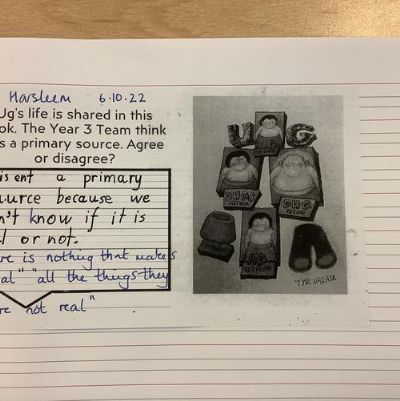 Harsleem 6.10.22
Ug's life is shared in this
ok. The Year 3 Team think
s a primary source. Agree
or disagree?
is ent a primary
urce because we
n't know if it is
l or not.
re is nothing that makes
al" "all the things they
re not real"
U G
DUG
UG
THE DREAM